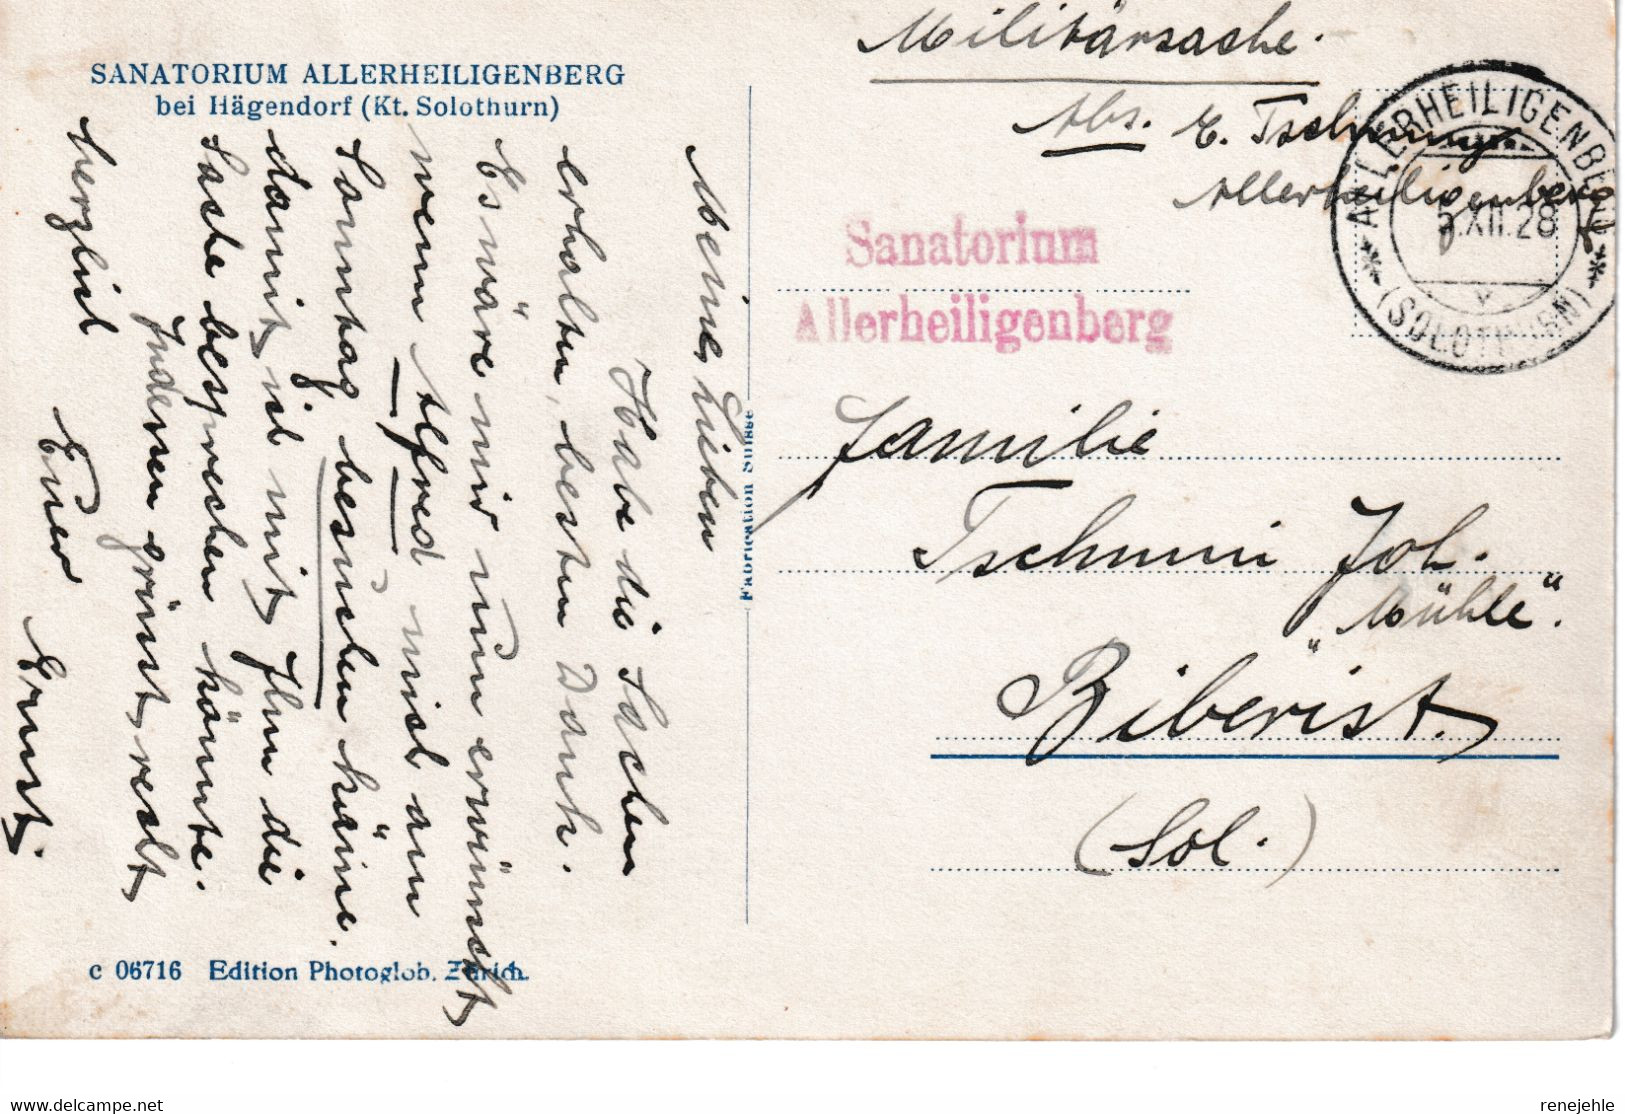 SANATORIUM ALLERHEILIGENBERG
bei Hägendorf (Kt. Solothurn)
Meine Lieben
Habe die Sachen
erhalten, besten Dank.
Es wäre mir nun erwünscht
wenn Alfred mich am
Sonntag besuchen käme,
damit ich mit Ihm die
Sache besprechen könnte.
Indessen grüsst recht
herzlich
Euer
Ernst.
c 06716 Edition Photoglob. Zürich.
Fabrication Suisse
Militärsache.
Abs. E. Tschumi
Allerheiligenberg
ALLERHEILIGENBERG
5.XII.28
(SOLOTHURN)
Sanatorium
Allerheiligenberg
Familie
Tschumi Joh.
"Mühle".
Biberist.
(Sol.)
delcampe.net
renejehle